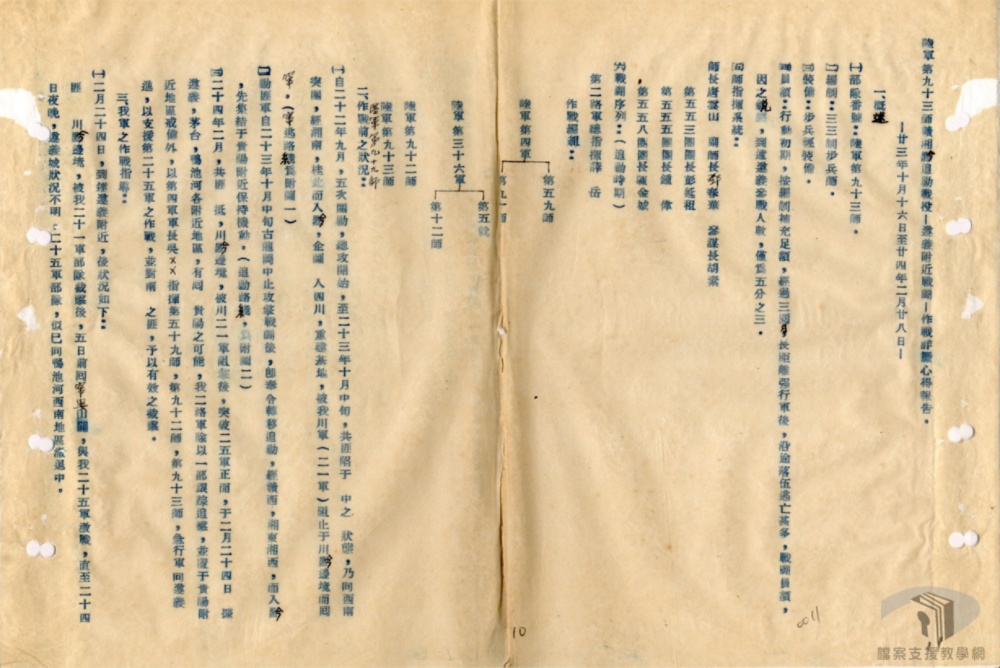 陸軍第九十三師贛湘黔追動戰役—遵義附近戰鬪—作戰詳報心得報告。
—廿三年十月十六日至廿四年二月廿八日—
一、概述
㈠部隊番號：陸軍第九十三師。
㈡編制：三三制步兵師。
㈢裝備：步兵輕裝備。
㈣員額：行動初期，按編制補充足額，經過三個月長距離強行軍後，沿途落伍逃亡甚多，戰鬪員額，
因之，到達遵義參戰人數，僅爲五分之三。
師指揮系統：
師長唐雲山　副師長　參謀長胡素
第五五三團團長彭廷祖
第五五五團團長　偉
第五五八團團長　金城
戰鬪序列：（追動時期）
第二路軍總指揮薛　岳
作戰編組：
陸軍第四軍
第五九師
第九十師
陸軍第三十六軍
第五號
第十二師
陸軍第九十二師
陸軍第九十三師
陸軍第九十九師
二、作戰前之狀況：
㈠自二十二年九月，五次圍剿，總攻開始，至二十三年十月中旬，共匪陷于　中之　狀態，乃向西南
突圍，經湘南，桂北而入黔，企圖　入四川，重建基地，被我川軍（二一軍）阻止于川黔邊境而回
竄。（竄逃路線爲附圖一）
㈡動匪軍自二十三年十月中旬古龍岡中止攻擊戰鬪後，即奉令轉移追動，經贛西，湘東湘西，而入黔
，先集結于貴陽附近保持機動。（追動路線，爲附圖二）
㈢二十四年二月，共匪　抵　川黔邊境，被川二一軍阻擊後，突破二五軍正面，于二月二十四日　據
遵義，茅台，鴨池河各附近地區，有窺　貴陽之可能，我二路軍除以一部跟踪追擊，並置于貴陽附
近地區戒備外，以第四軍軍長吳××指揮第五十九師，第九十二師，第九十三師，急行軍向遵義
進，以支援第二十五軍之作戰，並對南　之匪，予以有效之截擊。
三、我軍之作戰指導：
㈠二月二十四日，到達遵義附近，後狀況如下：
匪　川黔邊境，被我二十一軍部隊截擊後，五日前回竄婁山關，與我二十五軍激戰，直至二十四
日夜晚，遵義城狀況不明，二十五軍部隊，似已向鴨池河西南地區撤退中。
10
0011
檔案支援教學網